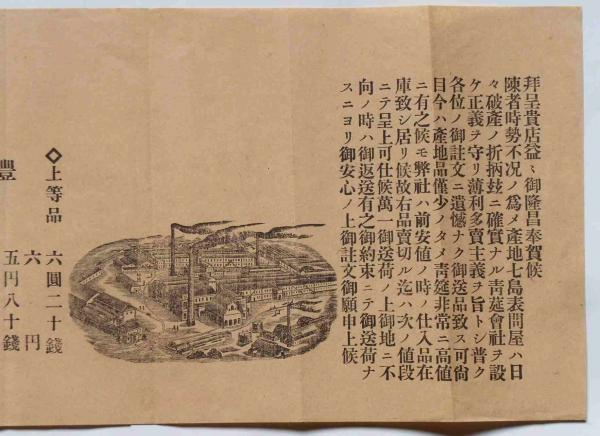 拜呈貴店益〻御隆昌奉賀候
陳者時勢不況ノ爲メ產地七島表問屋ハ日
々破產ノ折柄玆ニ確實ナル靑莚會社ヲ設
ケ正義ヲ守リ薄利多賣主義ヲ旨トシ普ク
各位ノ御註文ニ遺憾ナク御送品致ス可尙
目今ハ產地品僅少ノタメ靑莚非常ニ高値
ニ有之候モ弊社ハ前安値ノ時ノ仕入品在
庫致シ居リ候故右品賣切ル迄ハ次ノ値段
ニテ呈上可仕候萬一御送荷ノ上御地ニ不
向ノ時ハ御返送有之御約束ニテ御送荷ナ
スニヨリ御安心ノ上御註文御願申上候
◇上等品 六圓二十錢
六円
豐 五円八十錢